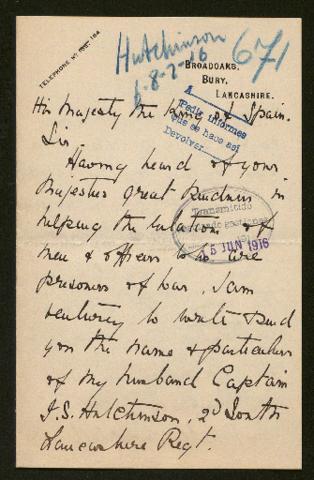 Hutchinson
6-8-7-16
671
TELEPHONE Nº 16A
BROADOAKS,
BURY,
LANCASHIRE.
His Majesty the King of Spain.
Pedir informes
que se hace así
Devolver
Sir
Having heard of your
Majesties great kindness in
helping the relations of
men & officers who are
prisoners of war, I am
Transmitido
15 JUN 1916
venturing to write & send
you the name & particulars
of my husband Captain
J.S. Hutchinson, 2d South
Lancashire Regt.